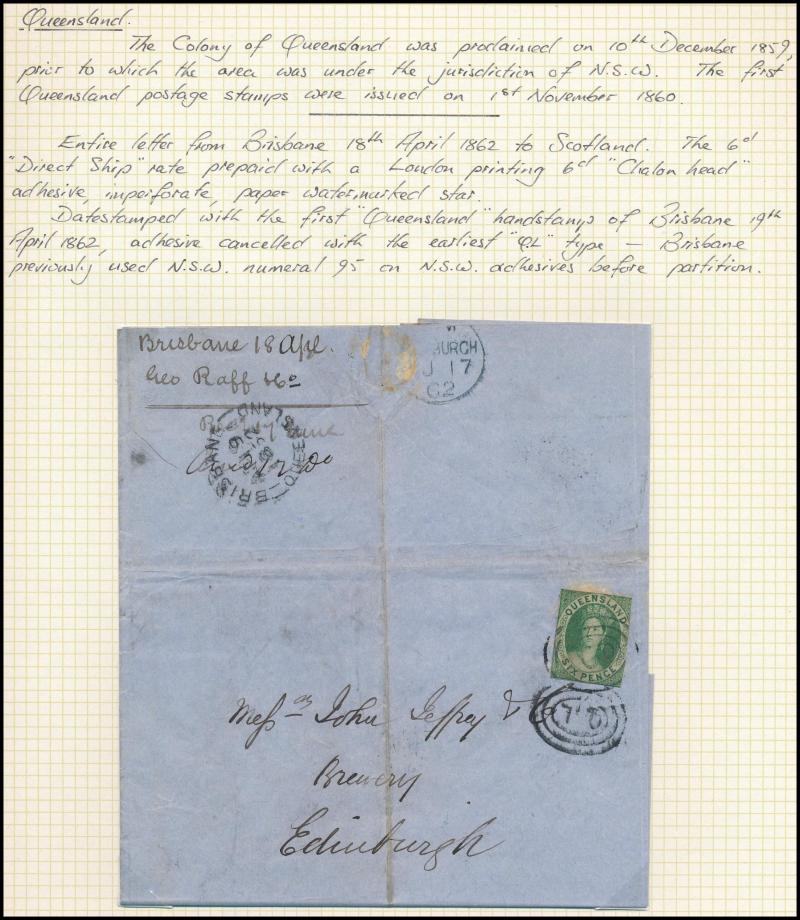 Queensland.
The Colony of Queensland was proclaimed on 10th December 1859,
prior to which the area was under the jurisdiction of N.S.W. The first
Queensland postage stamps were issued on 1st November 1860.
Entire letter from Brisbane 18th April 1862 to Scotland. The 6d
"Direct Ship" rate prepaid with a London printing 6d "Chalon head"
adhesive, imperforate, paper watermarked star.
Datestamped with the first "Queensland" handstamp of Brisbane 19th
April 1862, adhesive cancelled with the earliest "QL" type — Brisbane
previously used N.S.W. numeral 95 on N.S.W. adhesives before partition.
Brisbane 18 Apl.
Geo Raff & Co
BURGH
J 17
62
BRISBANE
QUEENSLAND
QUEENSLAND
SIX PENCE
Q.L
Messrs John Jeffrey & Co
Brewery
Edinburgh